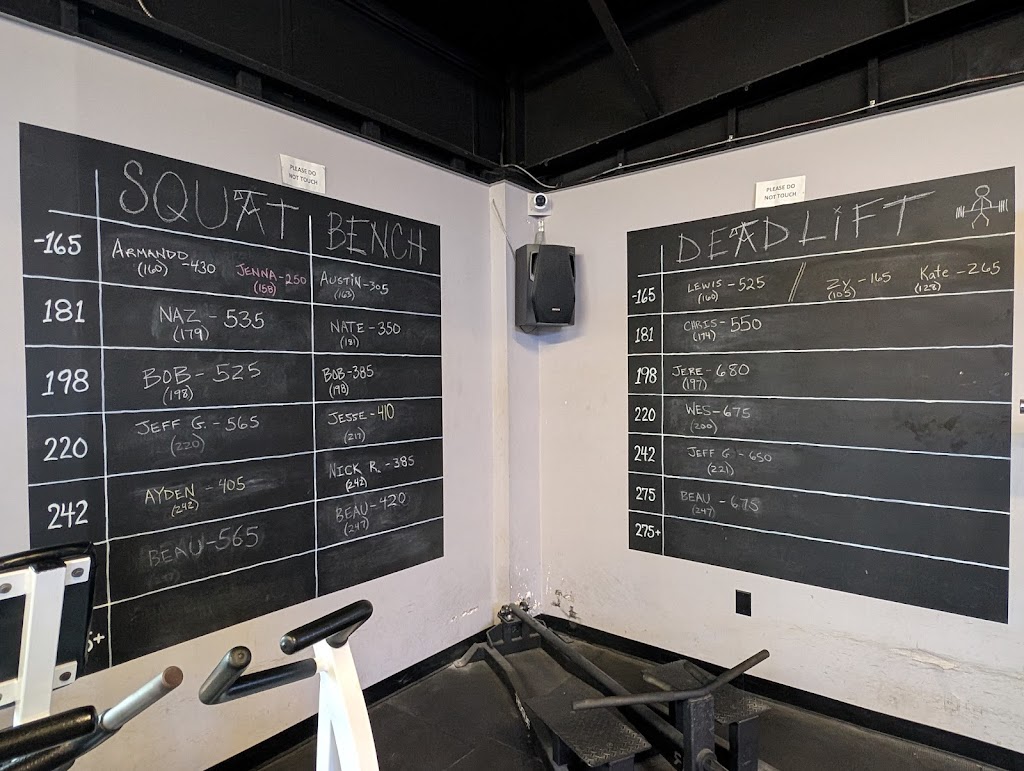 PLEASE DO
NOT TOUCH
SQUAT BENCH
-165 ARMANDO -430 JENNA-250 AUSTIN-305
(160) (158) (163)
181 NAZ - 535 NATE-350
(179) (181)
198 BOB-525 BOB-385
(198) (198)
220 JEFF G. -565 JESSE-410
(220) (217)
242 AYDEN -405 NICK R. -385
(242) (242)
BEAU-565 BEAU-420
(247)
+
PLEASE DO
NOT TOUCH
DEADLiFT
-165 LEWIS -525 // ZY -165 Kate -265
(160) (105) (128)
181 CHRIS- 550
(174)
198 JERE-680
(197)
220 WES-675
(200)
242 JEFF G. -650
(221)
275 BEAU -675
(247)
275+